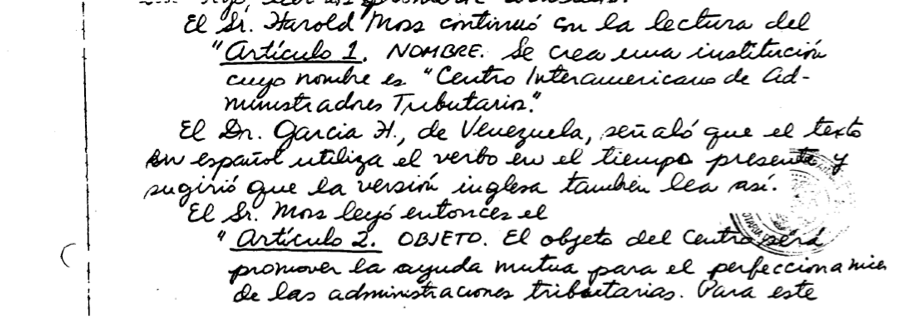 El Sr. Harold Moss continuó con la lectura del
"Artículo 1. NOMBRE. Se crea una institución
cuyo nombre es "Centro Interamericano de Ad-
ministradores Tributarios."
El Dr. Garcia H., de Venezuela, señaló que el texto
en español utiliza el verbo en el tiempo presente y
sugirió que la versión inglesa también lea así.
El Sr. Moss leyó entonces el
"Artículo 2. OBJETO. El objeto del Centro será
promover la ayuda mutua para el perfeccionamien
de las administraciones tributarias. Para este